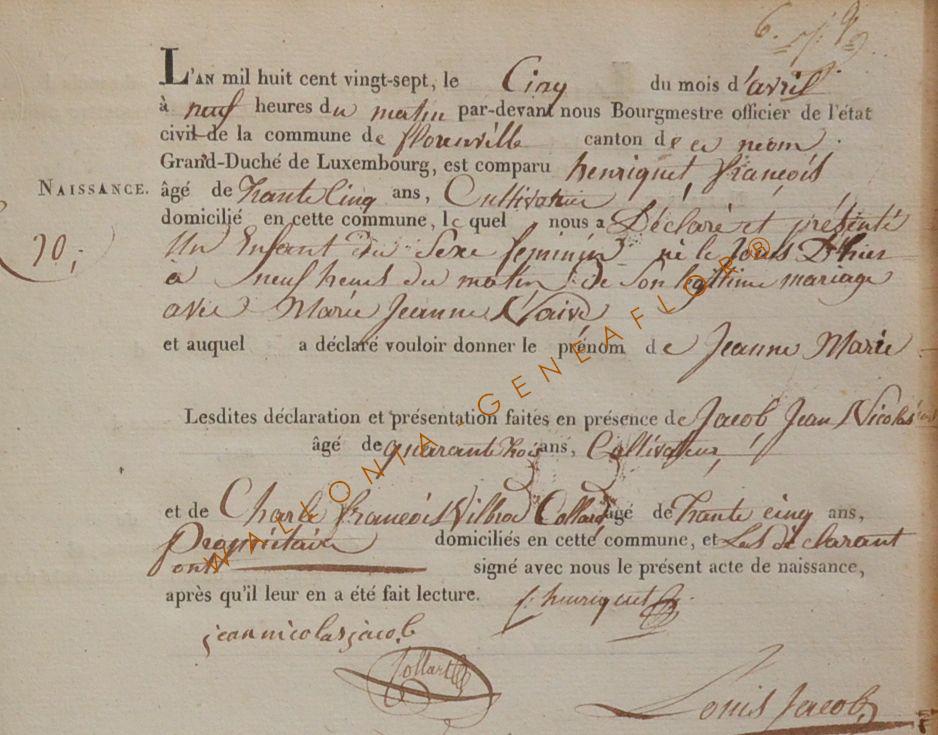 6.
L'AN mil huit cent vingt-sept, le Cinq du mois d'avril
à neuf heures du matin par-devant nous Bourgmestre officier de l'état
civil de la commune de florenville canton de ce nom
Grand-Duché de Luxembourg, est comparu henriquet, françois
NAISSANCE. âgé de trante Cinq ans, Cultivateur
domicilié en cette commune, le quel nous a Déclaré et présenté
10; Un Enfant du Sexe feminin né le jours D'hier
a neuf heurs du matin de Son légitime mariage
avec Marie Jeanne
et auquel a déclaré vouloir donner le prénom de Jeanne Marie
Lesdites déclaration et présentation faites en présence de Jacob Jean Nicolas
âgé de quarante trois ans, Cultivateur,
et de Charle françois Vilbrod Collard âgé de trante cinq ans,
Propriétaire domiciliés en cette commune, et Les déclarant
ont signé avec nous le présent acte de naissance,
après qu'il leur en a été fait lecture. f. henriquet
jean nicolas jacob
Collart
Louis Jacob
WALLONIA - GENEAFLOR®